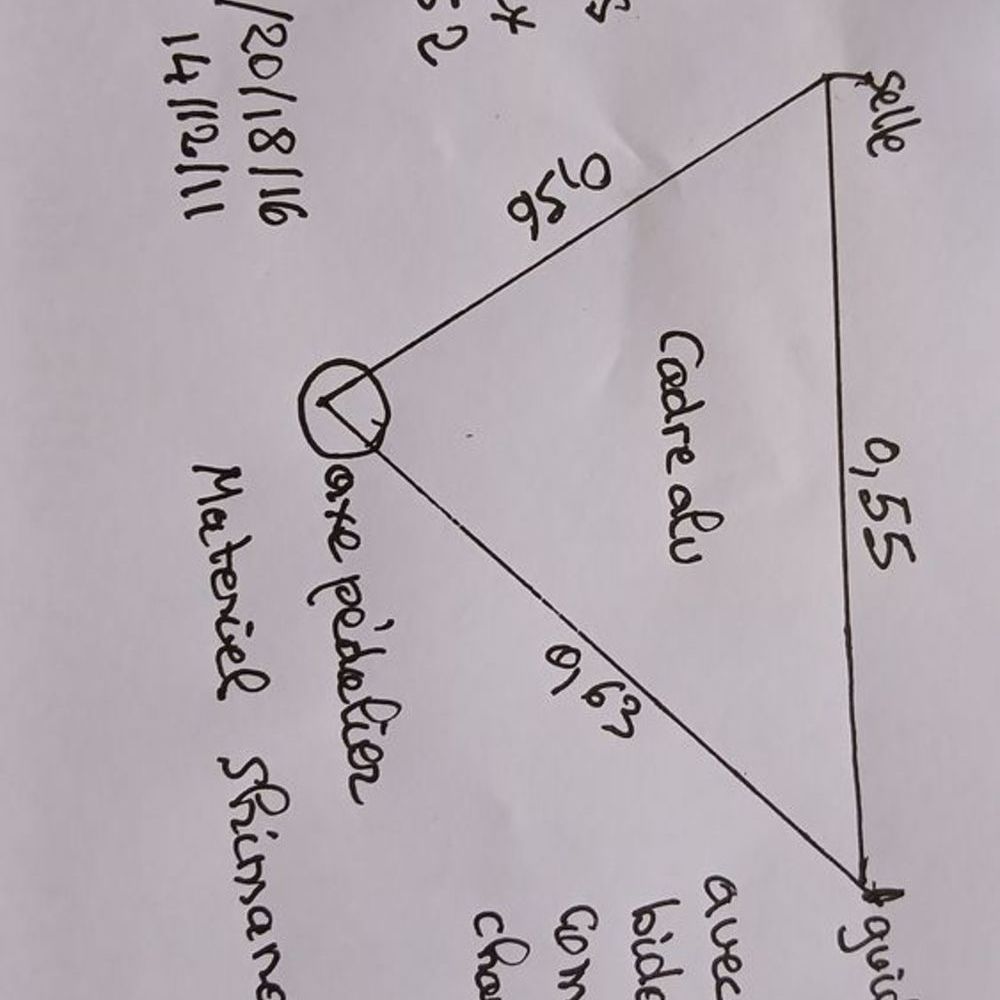 selle
0,55
0,56
Cadre alu
0,63
avec
axe pédalier
52
/20/18/16
14/12/11
Materiel Shimano